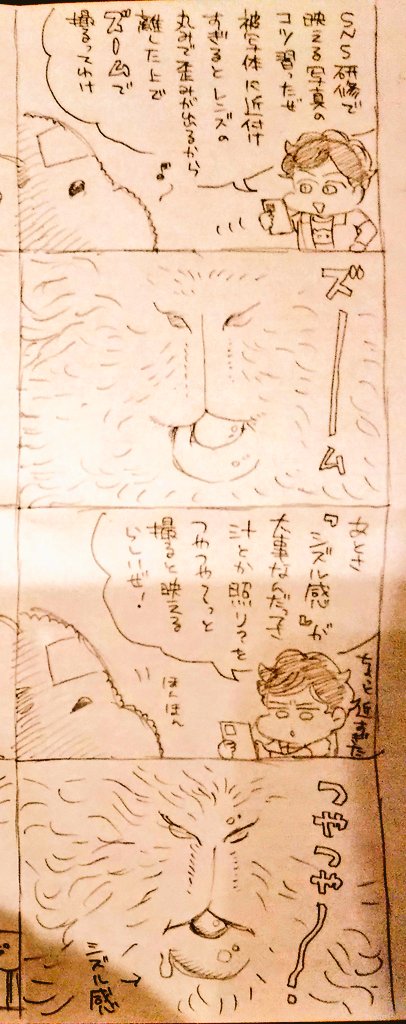 SNS研修で
映える写真の
コツ習ったぜ
被写体に近付け
すぎるとレンズの
丸みで歪みが出るから
離した上で
ズームで
撮るってわけ
ズーーム
あとさ
『シズル感』が
大事なんだってさ
汁とか照り?を
つやつや〜っと
撮ると映える
らしいぜ!
ちょっと近すぎた
ほんほん
つやつや〜。
シズル感